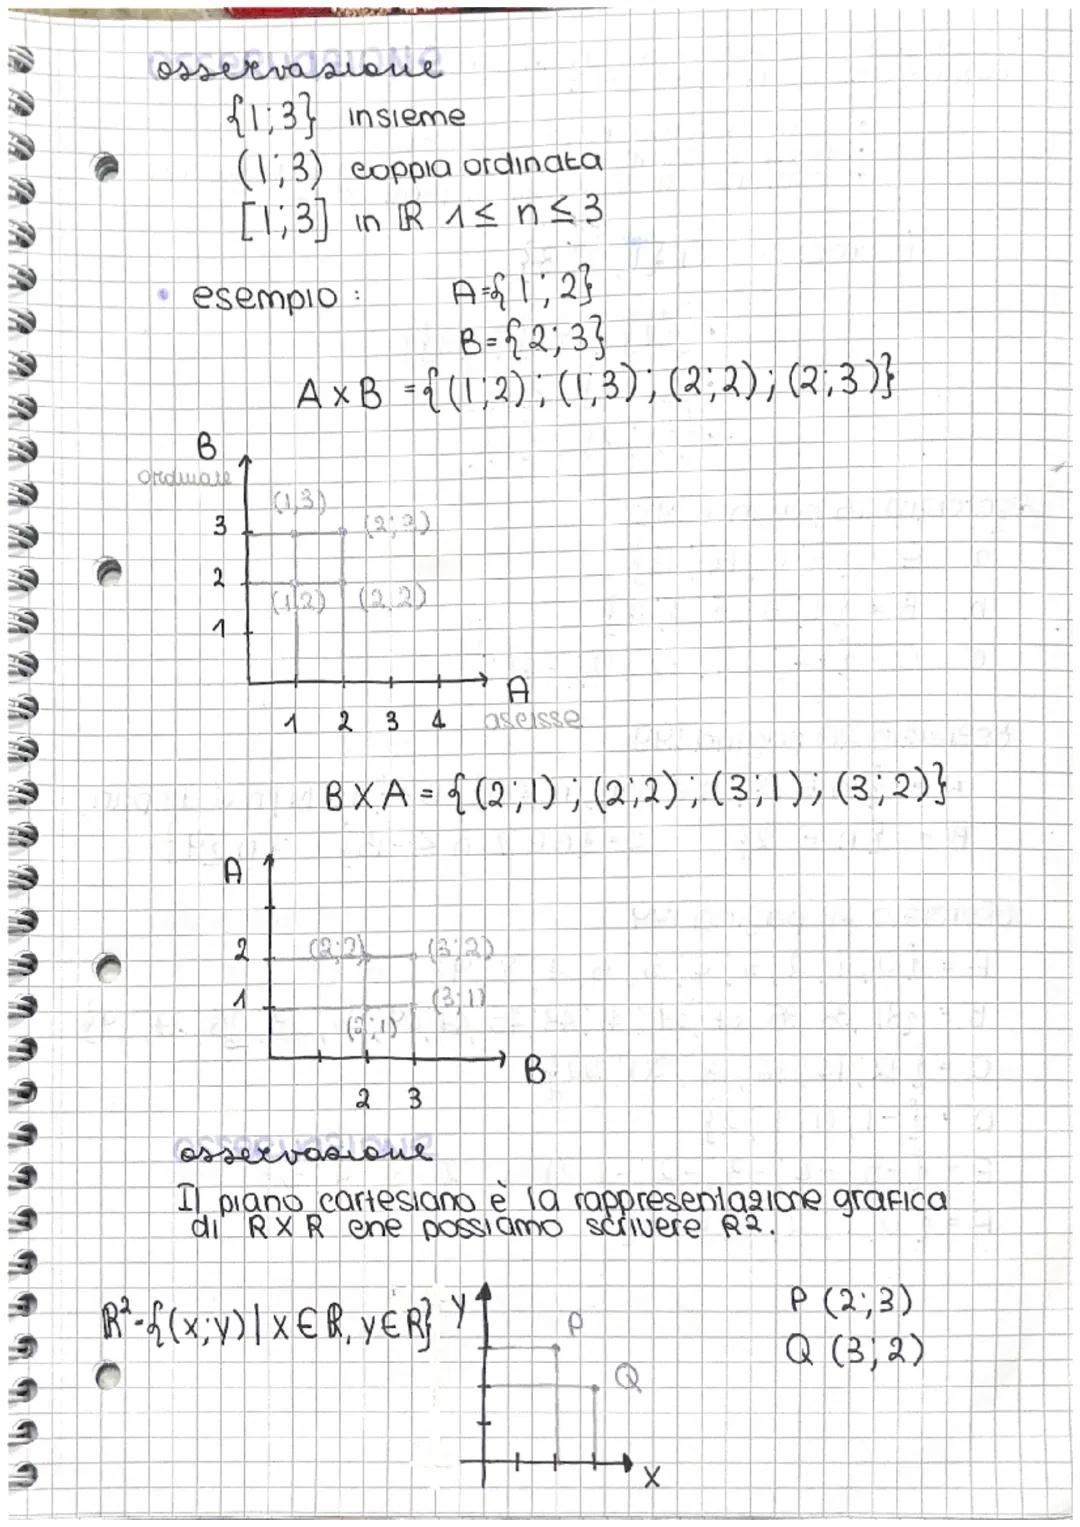 osservazione
{1;3} insieme
(1;3) coppia ordinata
[1;3] in ℝ 1≤ n ≤3
• esempio : A={1;2}
B={2;3}
A x B ={(1;2); (1;3); (2;2); (2;3)}
B
ordinate
(1,3)
3
2
(1,2) (2,2)
1
A
1 2 3 4 ascisse
B X A = {(2;1); (2;2); (3;1); (3;2)}
A
2 (2;2) (3;2)
1 (3;1)
(2;1)
B
2 3
osservazione
Il piano cartesiano è la rappresentazione grafica
di R X R che possiamo scrivere R2.
ℝ²={(x;y)| x∈ℝ, y∈ℝ} Y P P (2;3)
Q Q (3;2)
X